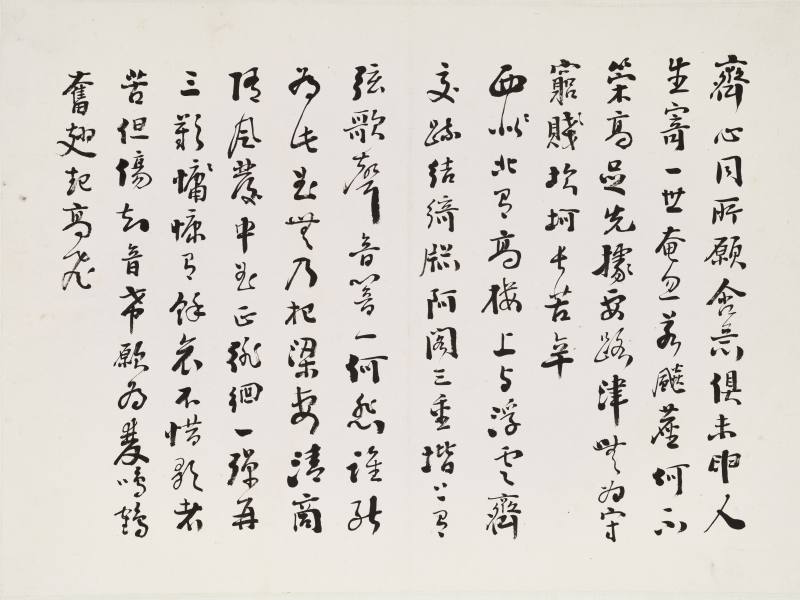 齊心同所願含意俱未申人
生寄一世奄忽若飈塵何不
策高足先據要路津無為守
窮賤坎坷長苦辛
西北有高樓上與浮雲齊
交疏結綺窗阿閣三重階上有
弦歌聲音響一何悲誰能
為此曲無乃杞梁妻清商
隨風發中曲正徘徊一彈再
三歎慷慨有餘哀不惜歌者
苦但傷知音希願為雙鳴鶴
奮翅起高飛